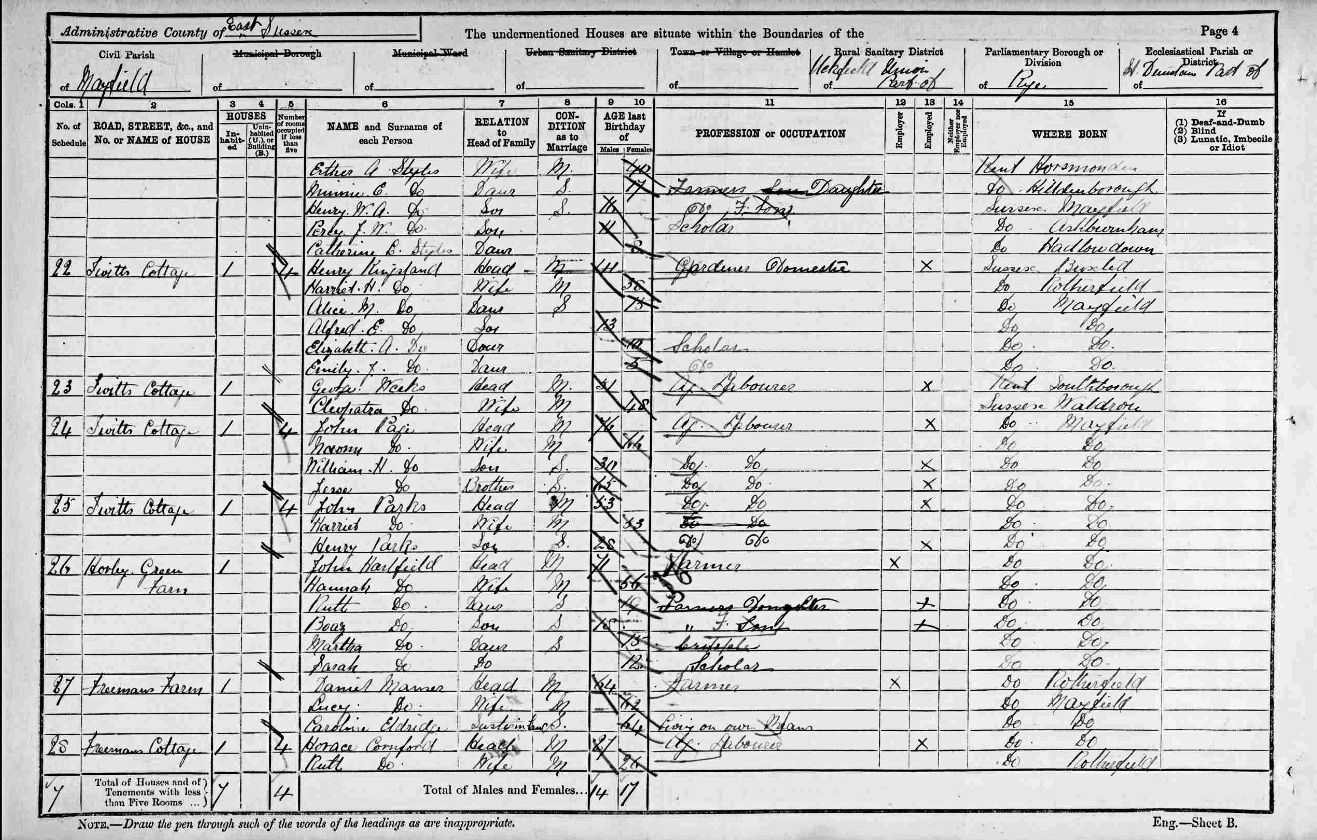 Administrative County of East Sussex
The undermentioned Houses are situate within the Boundaries of the
Page 4
Civil Parish of Mayfield
Municipal Borough of
Municipal Ward of
Urban Sanitary District of
Town or Village or Hamlet of
Rural Sanitary District of Uckfield Union Part of
Parliamentary Borough or Division of Rye
Ecclesiastical Parish or District of St Dunstan Part of
Cols. 1 2 3 4 5 6 7 8 9 10 11 12 13 14 15 16
No. of Schedule
ROAD, STREET, &c., and No. or NAME of HOUSE
HOUSES
In-habit-ed
Unin-habited (U.), or Building (B.)
Number of rooms occupied if less than five
NAME and Surname of each Person
RELATION to Head of Family
CON-DITION as to Marriage
AGE last Birthday of
Males Females
PROFESSION or OCCUPATION
Employer
Employed
Neither Employer nor Employed
WHERE BORN
If
(1) Deaf-and-Dumb
(2) Blind
(3) Lunatic, Imbecile or Idiot
Esther A Styles Wife M Kent Horsmonden
Minnie E. Do Daur S. 17 Farmers Son Daughter Do Hildenborough
Henry. W. A. Do Son S. Do F. Son Sussex Mayfield
Percy. J. W. Do Son 11 Scholar Do Ashburnham
Catherine E. Styles Daur 8 Do Hadlowdown
22 Twitts Cottage 1 4 Henry Kingsland Head M 41 Gardener Domestic X Sussex Buxted
Harriet. H. Do Wife M Do Rotherfield
Alice. M. Do Daur S 15 Do Mayfield
Alfred E. Do Son 13 Do Do
Elizabeth. A. Do Daur 10 Scholar Do Do
Emily. J. Do Daur 5 Do Do Do
23 Twitts Cottage 1 George Weeks Head M. 51 Ag. Labourer X Kent Southborough
Cleopatra Do Wife M 48 Sussex Waldron
24 Twitts Cottage 1 4 John Page Head M Ag. Labourer X Do Mayfield
Naomy Do. Wife M Do Do
William. H. Do Son S. 30 Do Do X Do Do
Jesse Do Brother S. 65 Do Do X Do Do
25 Twitts Cottage 1 4 John Parks Head M 53 Do Do X Do Do
Harriet Do Wife M 53 Do Do Do Do
Henry Parks Son S. 28 Do Do X Do Do
26 Horley Green Farm 1 John Hartfield Head M Farmer X Do Do
Hannah Do Wife M 56 Do Do
Ruth Do Daur S 19 Farmers Daughter X Do Do
Boaz Do. Son S " F. Son X Do Do
Martha Do Daur S 15 Cripple Do Do
Sarah Do Do 12 Scholar Do Do
27 Freemans Farm 1 Daniel Manser Head M 64 Farmer X Do Rotherfield
Lucy Do Wife M 62 Do Mayfield
Caroline Eldridge Sister in Law S. 64 Living on own Means Do Do
28 Freemans Cottage 1 4 Horace Cornford Head M 27 Ag. Labourer X Do Do
Ruth Do Wife M 26 Do Rotherfield
7 Total of Houses and of Tenements with less than Five Rooms ... 7 4 Total of Males and Females... 14 17
NOTE.—Draw the pen through such of the words of the headings as are inappropriate.
Eng.—Sheet B.